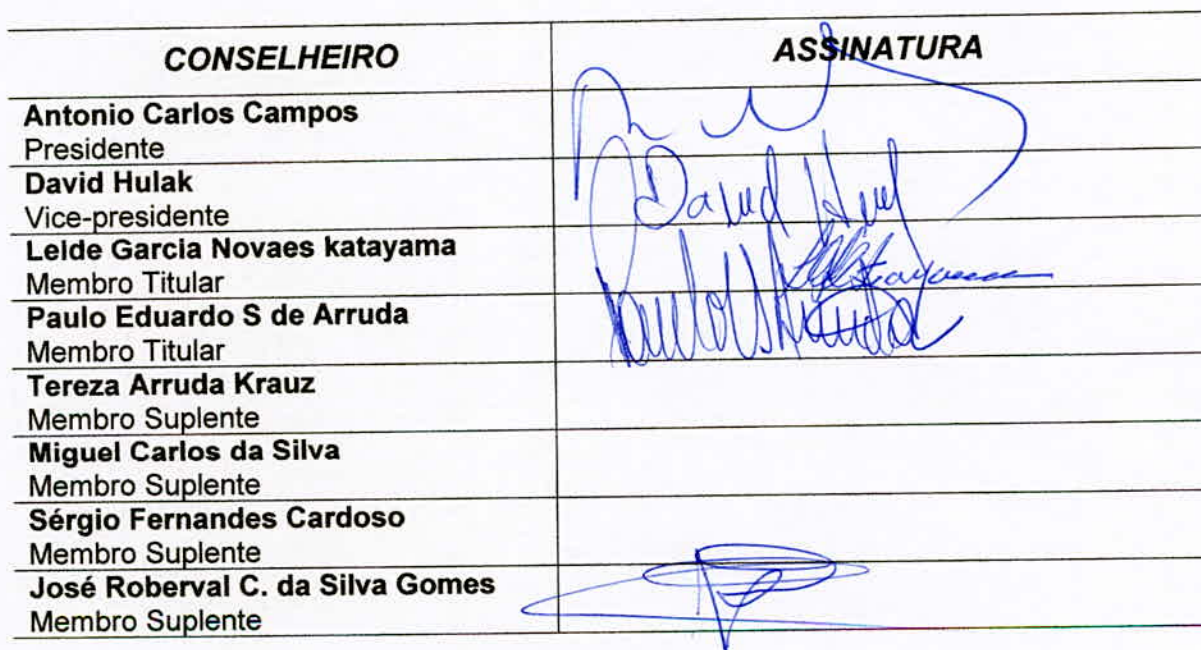 CONSELHEIRO ASSINATURA
Antonio Carlos Campos
Presidente
David Hulak
Vice-presidente
David
Lelde Garcia Novaes katayama
Membro Titular
Paulo Eduardo S de Arruda
Membro Titular
Tereza Arruda Krauz
Membro Suplente
Miguel Carlos da Silva
Membro Suplente
Sérgio Fernandes Cardoso
Membro Suplente
José Roberval C. da Silva Gomes
Membro Suplente